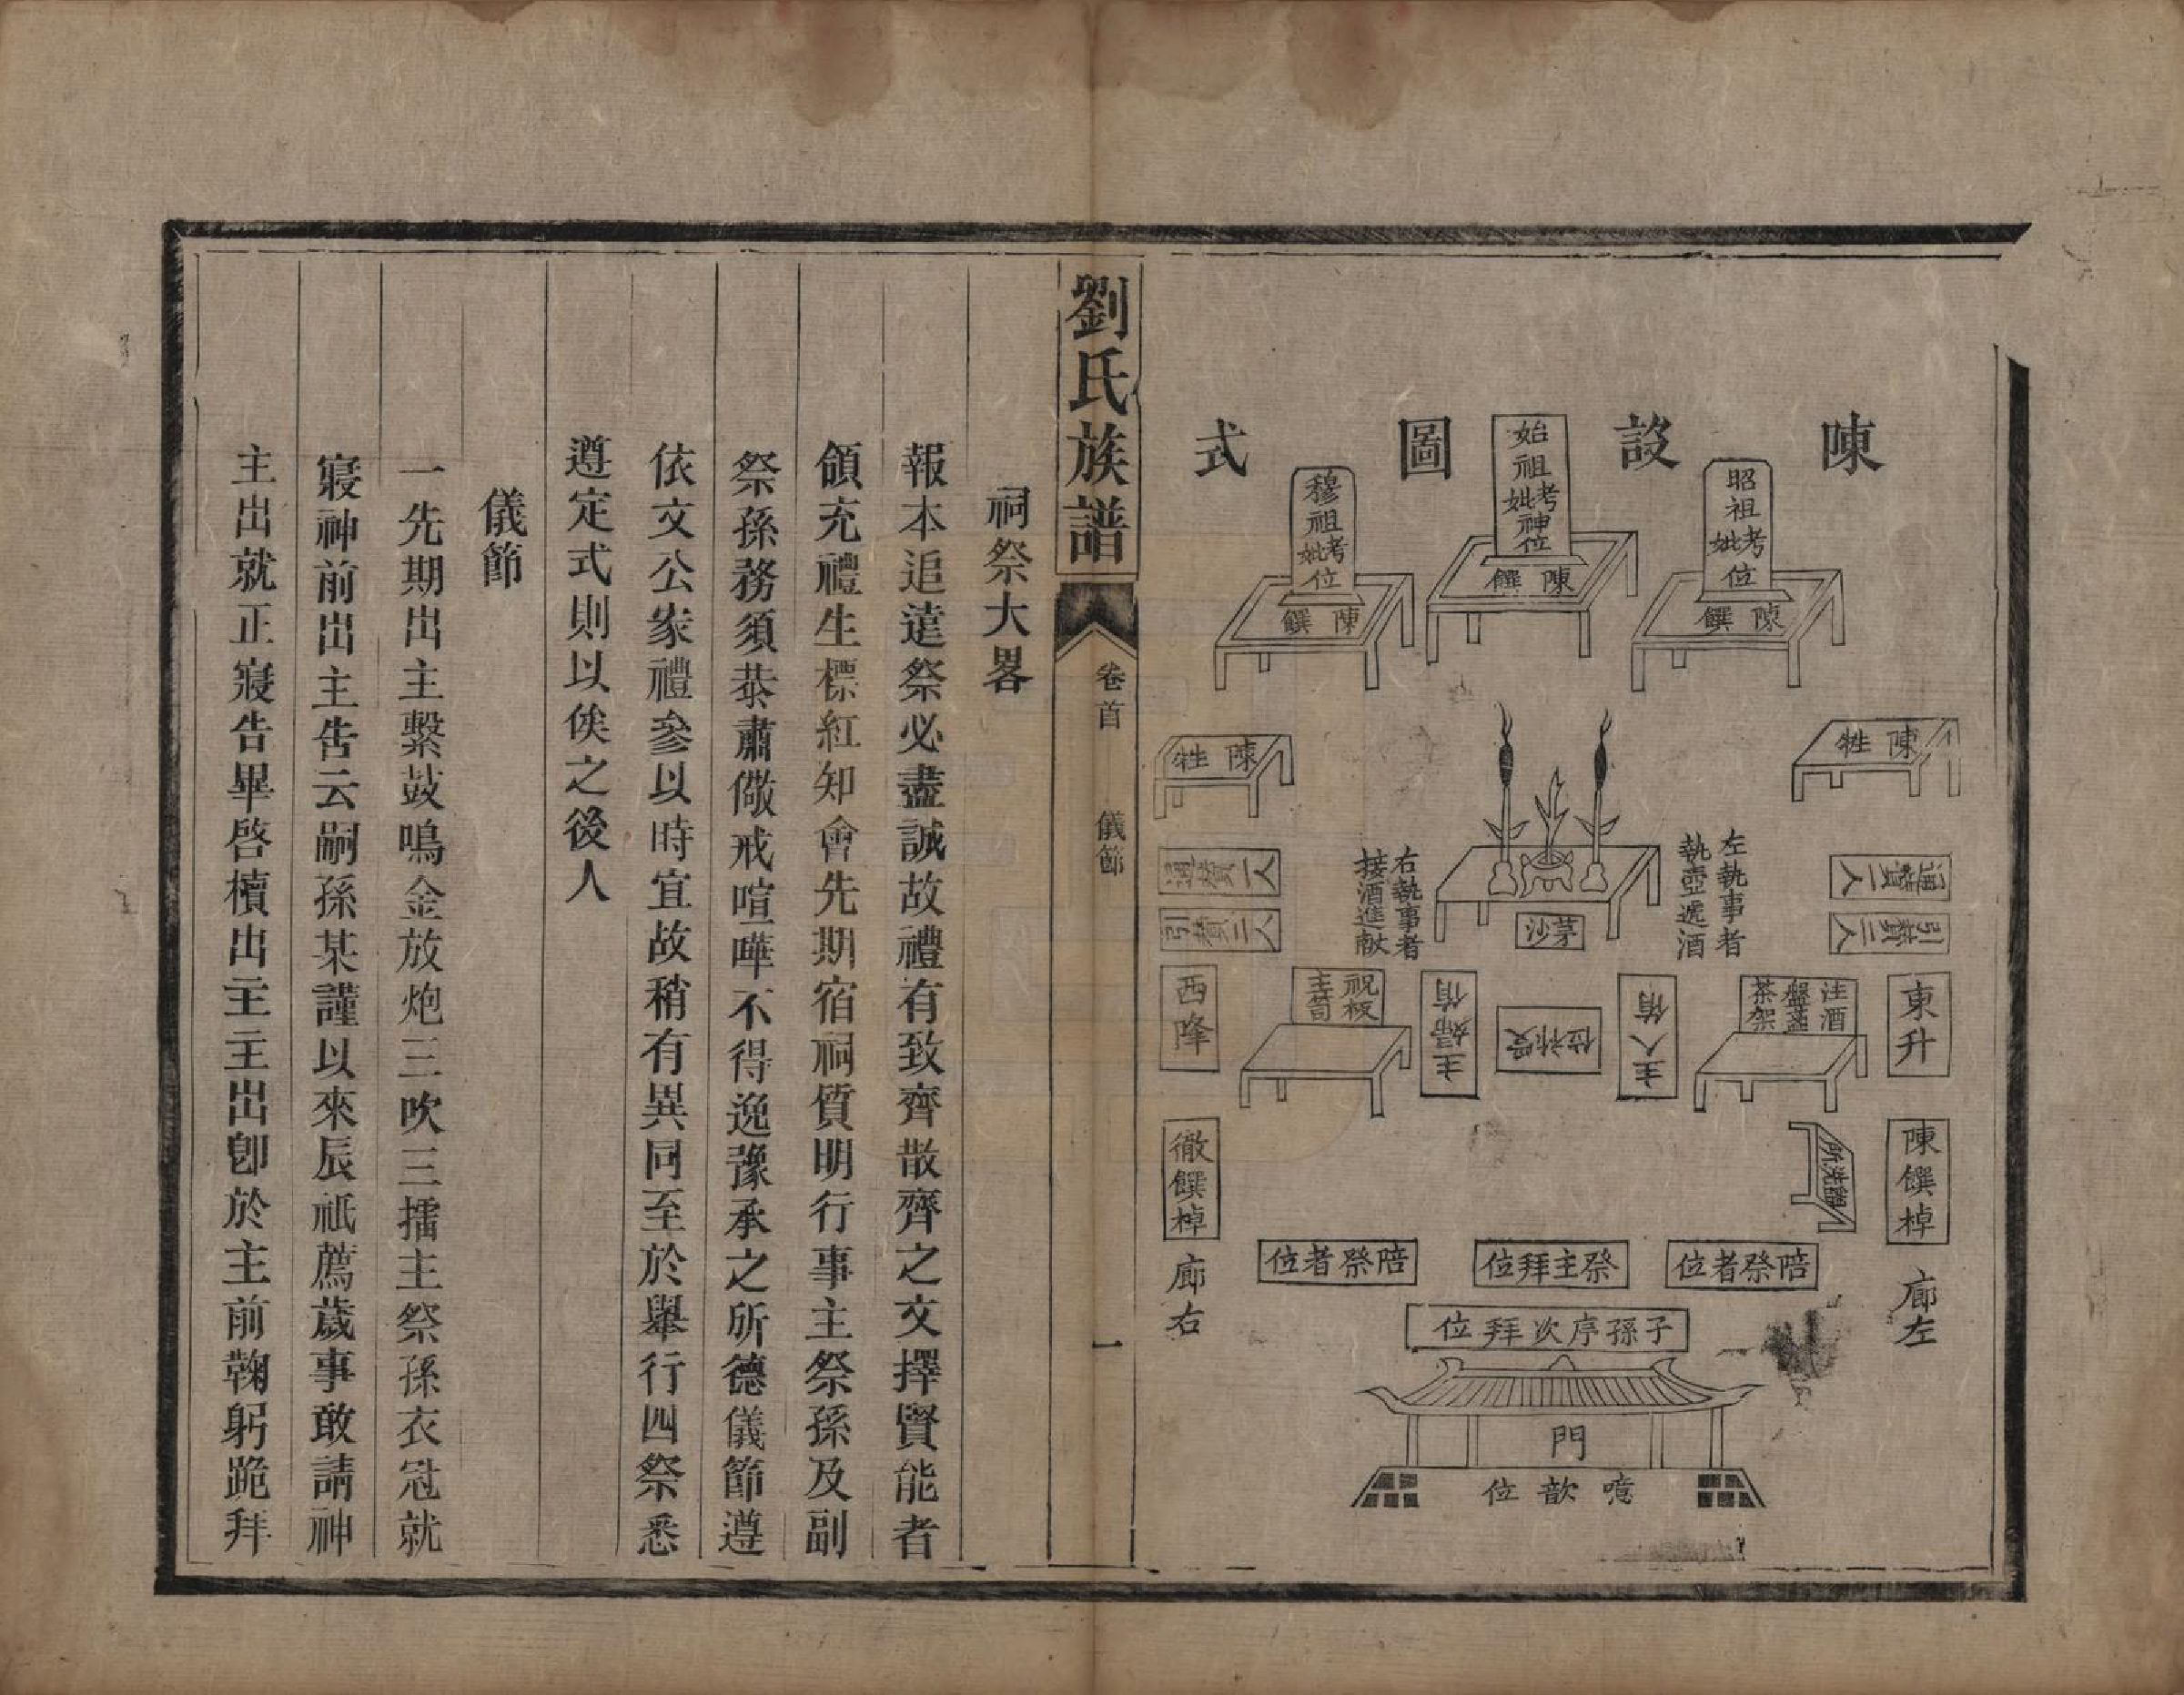 陳設圖式
昭祖考妣位
陳饌
始祖考妣神位
陳饌
穆祖考妣位
陳饌
陳牲
陳牲
左執事者
執壺遞酒
茅沙
右執事者
接酒進献
通贊一人
引贊二人
通贊一人
引贊二人
東升
注酒
盤盞
茶架
主人俏
受祚位
主婦俏
祝板
主笥
西降
陳饌棹
盥洗所
徹饌棹
廊左
陪祭者位
祭主拜位
陪祭者位
廊右
子孫序次拜位
門
噫歆位
劉氏族譜
卷首
儀節
一
祠祭大畧
報本追遠祭必盡誠故禮有致齊散齊之文擇賢能者
領充禮生標紅知會先期宿祠質明行事主祭孫及副
祭孫務須恭肅儆戒喧嘩不得逸豫承之所德儀節遵
依文公家禮參以時宜故稍有異同至於舉行四祭悉
遵定式則以俟之後人
儀節
一先期出主繫鼓鳴金放炮三吹三擂主祭孫衣冠就
寢神前出主告云嗣孫某謹以來辰祇薦歲事敢請神
主出就正寢告畢啓櫝出主主出卽於主前鞠躬跪拜